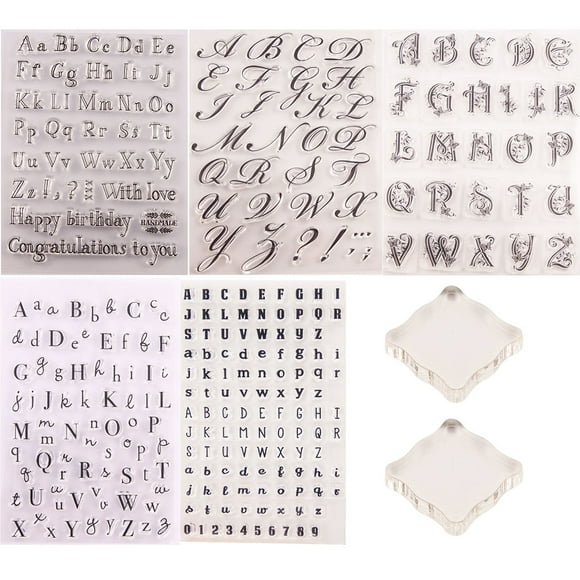 Aa Bb Cc Dd Ee
Ff Gg Hh Ii Jj
Kk Ll Mm Nn Oo
Pp Qq Rr Ss Tt
Uu Vv Ww Xx Yy
Zz ! , ? xxx With love
Happy birthday HANDMADE
Congratulations to you
A B C D
E F G H
I J K L
M N O P
Q R S T
U V W X
Y Z ? ! . , ; :
A B C D E
F G H I J K
L M N O P
Q R S T U
V W X Y Z
A a a B b b C c c
d D d E e e F f f
G g g H h h I i i
j j J k k K l l L
M m m N n n O o o
P p p q Q q R r r S s s T t t
U u u V v v W w w
X x x Y y y Z z z
A B C D E F G H I
J K L M N O P Q R
S T U V W X Y Z
a b c d e f g h i
j k l m n o p q r
s t u v w x y z
A B C D E F G H I
J K L M N O P Q R
S T U V W X Y Z
a b c d e f g h i
j k l m n o p q r
s t u v w x y z
0 1 2 3 4 5 6 7 8 9